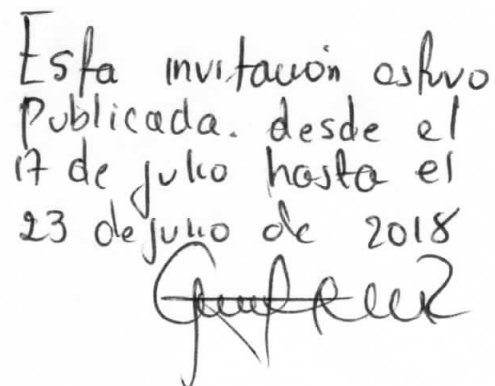 Esta invitación estuvo
Publicada. desde el
17 de julio hasta el
23 de julio de 2018